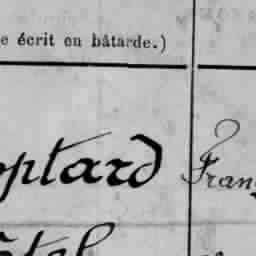 e écrit en bâtarde.)
ptard Fran
tel